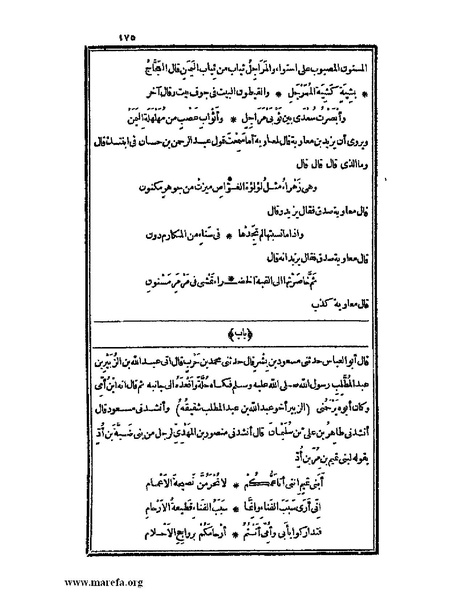 ١٧٥
المسنون المصبوب على استواء والمَرَاجِلُ ثياب من ثياب اليَمَنِ قال العَجَّاجُ
* بِشِيَةٍ كَشِيَةِ المُمَرْجَلِ * والقيطون البيت فى جوف بيت وقال آخر
وأَبْصَرْتُ سُعْدَى بين ثَوْبَىْ مَرَاجِلٍ * وأَثْوَابِ عَصْبٍ من مُهَلْهَلَةِ اليَمَنْ
ويروى أن يزيد بن معاوية قال لمعاوية أما سمِعْتَ قول عبد الرحمن بن حسان فى ابنتك قال
وما الذى قال قال قال
وهى زَهْراءُ مثـل لُؤْلُؤةِ الغَوَّاصِ مِيزَتْ من جوهرٍ مكنونِ
قال معاوية صدق فقال يزيد وقال
واذا ما نسبتها لم تَجِدْها * فى سَناءٍ من المكارم دون
قال معاوية صدق فقال يزيد انه قال
ثم خَاصَرْتها الى القبة الخضـ * ـراء تمشى فى مَرْمَرٍ مَسْنُونِ
قال معاوية كذب
﴿باب﴾
قال أبو العباس حدثنى مسعود بن بشر قال حدثنى محمد بن حَرْبٍ قال أتى عبد الله بن الزُّبَيْرِ بن
عبد المُطَّلِبِ رسول الله صلى الله عليه وسلم فكساه حُلَّةً وأَقْعَدَهُ الى جانبه ثم قال انه ابنُ أُمِّى
وكان أبوه يَرْحَمُنى (الزبير أخو عبد الله بن عبد المطلب شقيقه) وأنشدنى مسعود قال
أنشدنى طاهر بن على بن سُلَيْمَانَ قال أنشدنى منصور بن المَهْدِىِّ لرجل من بنى ضَبَّةَ بن أُدٍّ
يقوله لبنى تميم بن مر بن أُدٍّ
أَبَنِى تميمٍ اننى أنا عَمُّكُـمْ * لا تُحْرَمُنَّ نَصيحةَ الأَعْمامِ
إنّى أَرَى سَبَبَ الفَناءِ وإنَّما * سَبَبُ الفَناءِ قَطِيعةُ الأَرْحامِ
فتداركوا بأبى وأُمِّى أنْـتُمُ * أرحامَكُمْ بِرواجِحِ الأَحْـلام
www.marefa.org